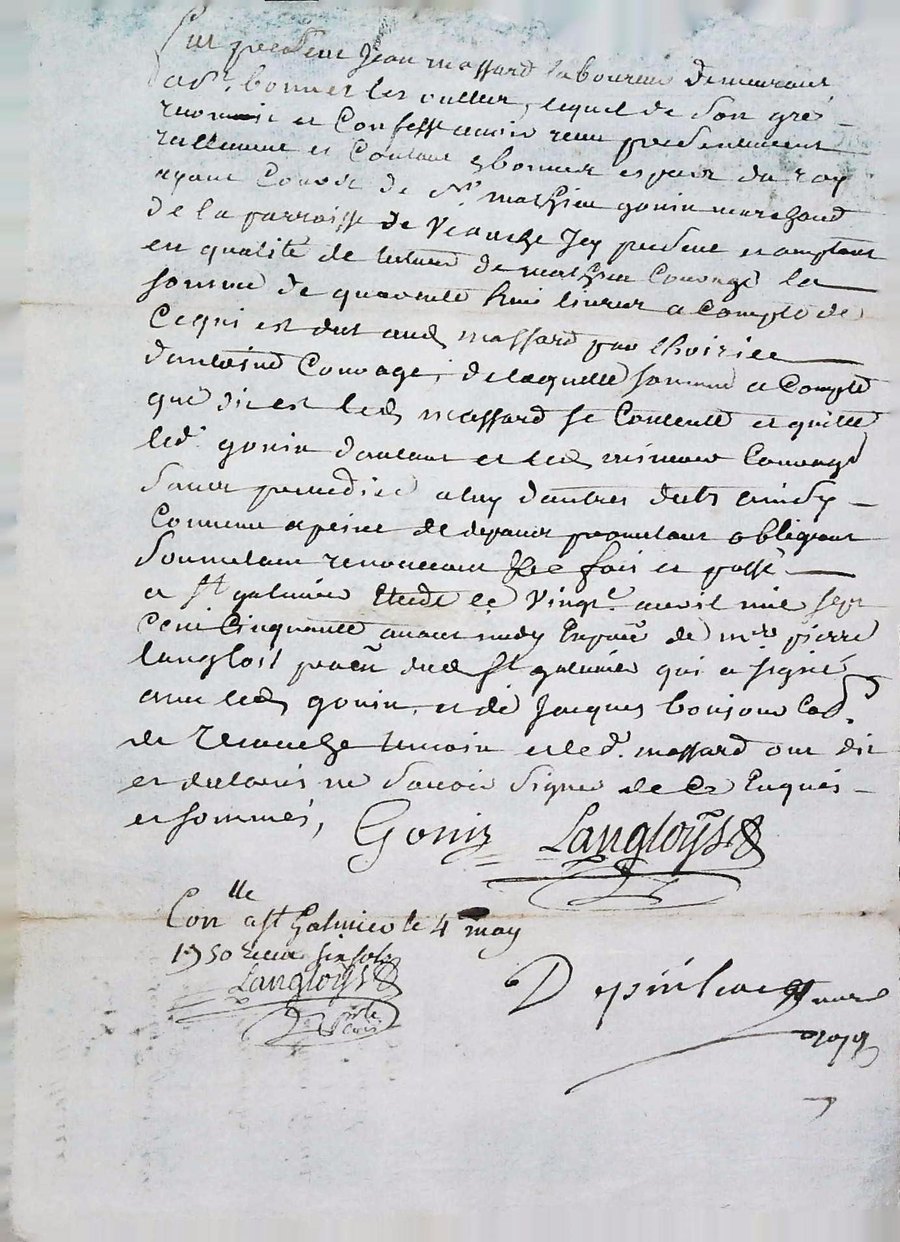 fut present Jean massard laboureur demeurant
a St. bonnet les oulles, lequel de son gré –
reconnoit et Confesse avoir receu presentement
reellement et Contant en bonnes especes du roy
ayant Cours de Sr. mathieu gonin marchand
de la parroisse de Veauche Icy present et acceptant
en qualité de tuteur de mathieu Couvage la
somme de quarante huit livres a Compte de
Cequi est dut aud massard par lhoirie
dantoine Couvage, de laquelle somme a Compte
que dit est led massard se Contente et quitte
led. gonin dautant et led mineur Couvage
sans prejudice a luy dautres debts ainsy –
Convenu a peine de depans promettant obligeant
Soumettant renonceant &ce fait et passé
a st galmier Etude le vingt. avril mil sept
Cent Cinquante avant midy En pnce de mre pierre
langlois dud st galmier qui a signé
avec led gonin, et de Jacques bonjour Cad.
de Veauche temoin et led. massard ont dit
et declaré ne savoir signer de Ce Enquis –
et sommés,
Gonin Langloys
Conlle a st Galmier le 4 may
1750 receu six sols
Langloys
D epinhac
royal